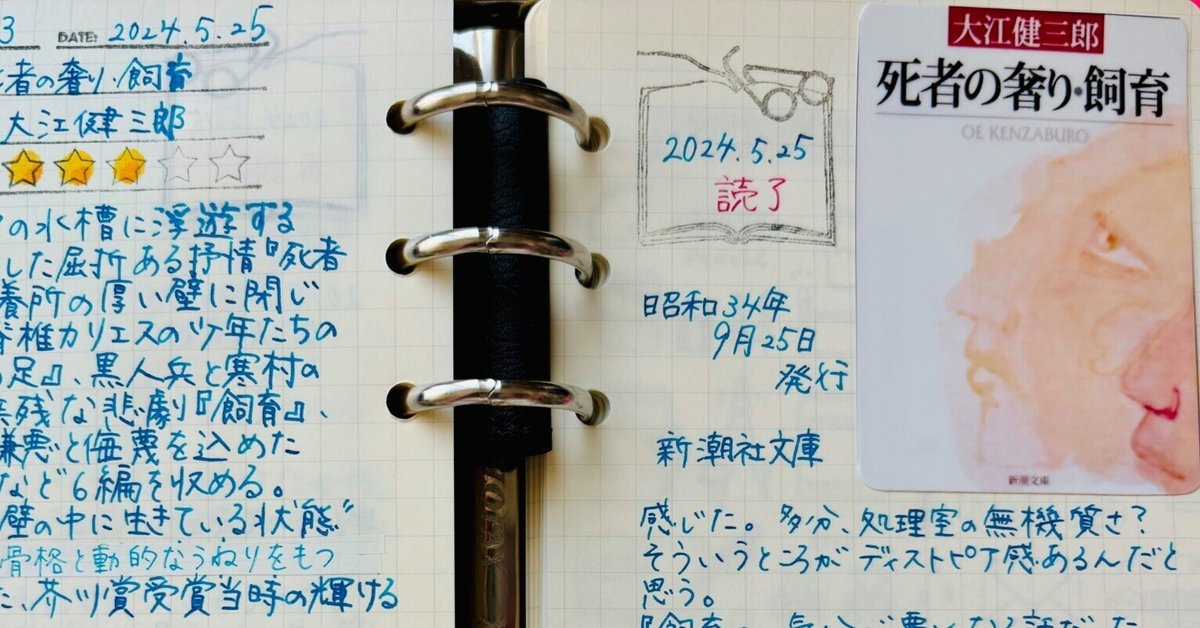 3 DATE: 2024.5.25
者の奢り・飼育
大江健三郎
の水槽に浮遊する
した屈折ある抒情『死者
養所の厚い壁に閉じ
脊椎カリエスの少年たちの
足』、黒人兵と寒村の
残な悲劇『飼育』、
嫌悪と侮蔑を込めた
など6編を収める。
壁の中に生きている状態”
骨格と動的なうねりをもつ
た、芥川賞受賞当時の輝ける
2024.5.25
読了
昭和34年
9月25日
発行
新潮社文庫
大江健三郎
死者の奢り・飼育
OE KENZABURO
新潮文庫
感じた。多分、処理室の無機質さ？
そういうところがディストピア感あるんだと
思う。